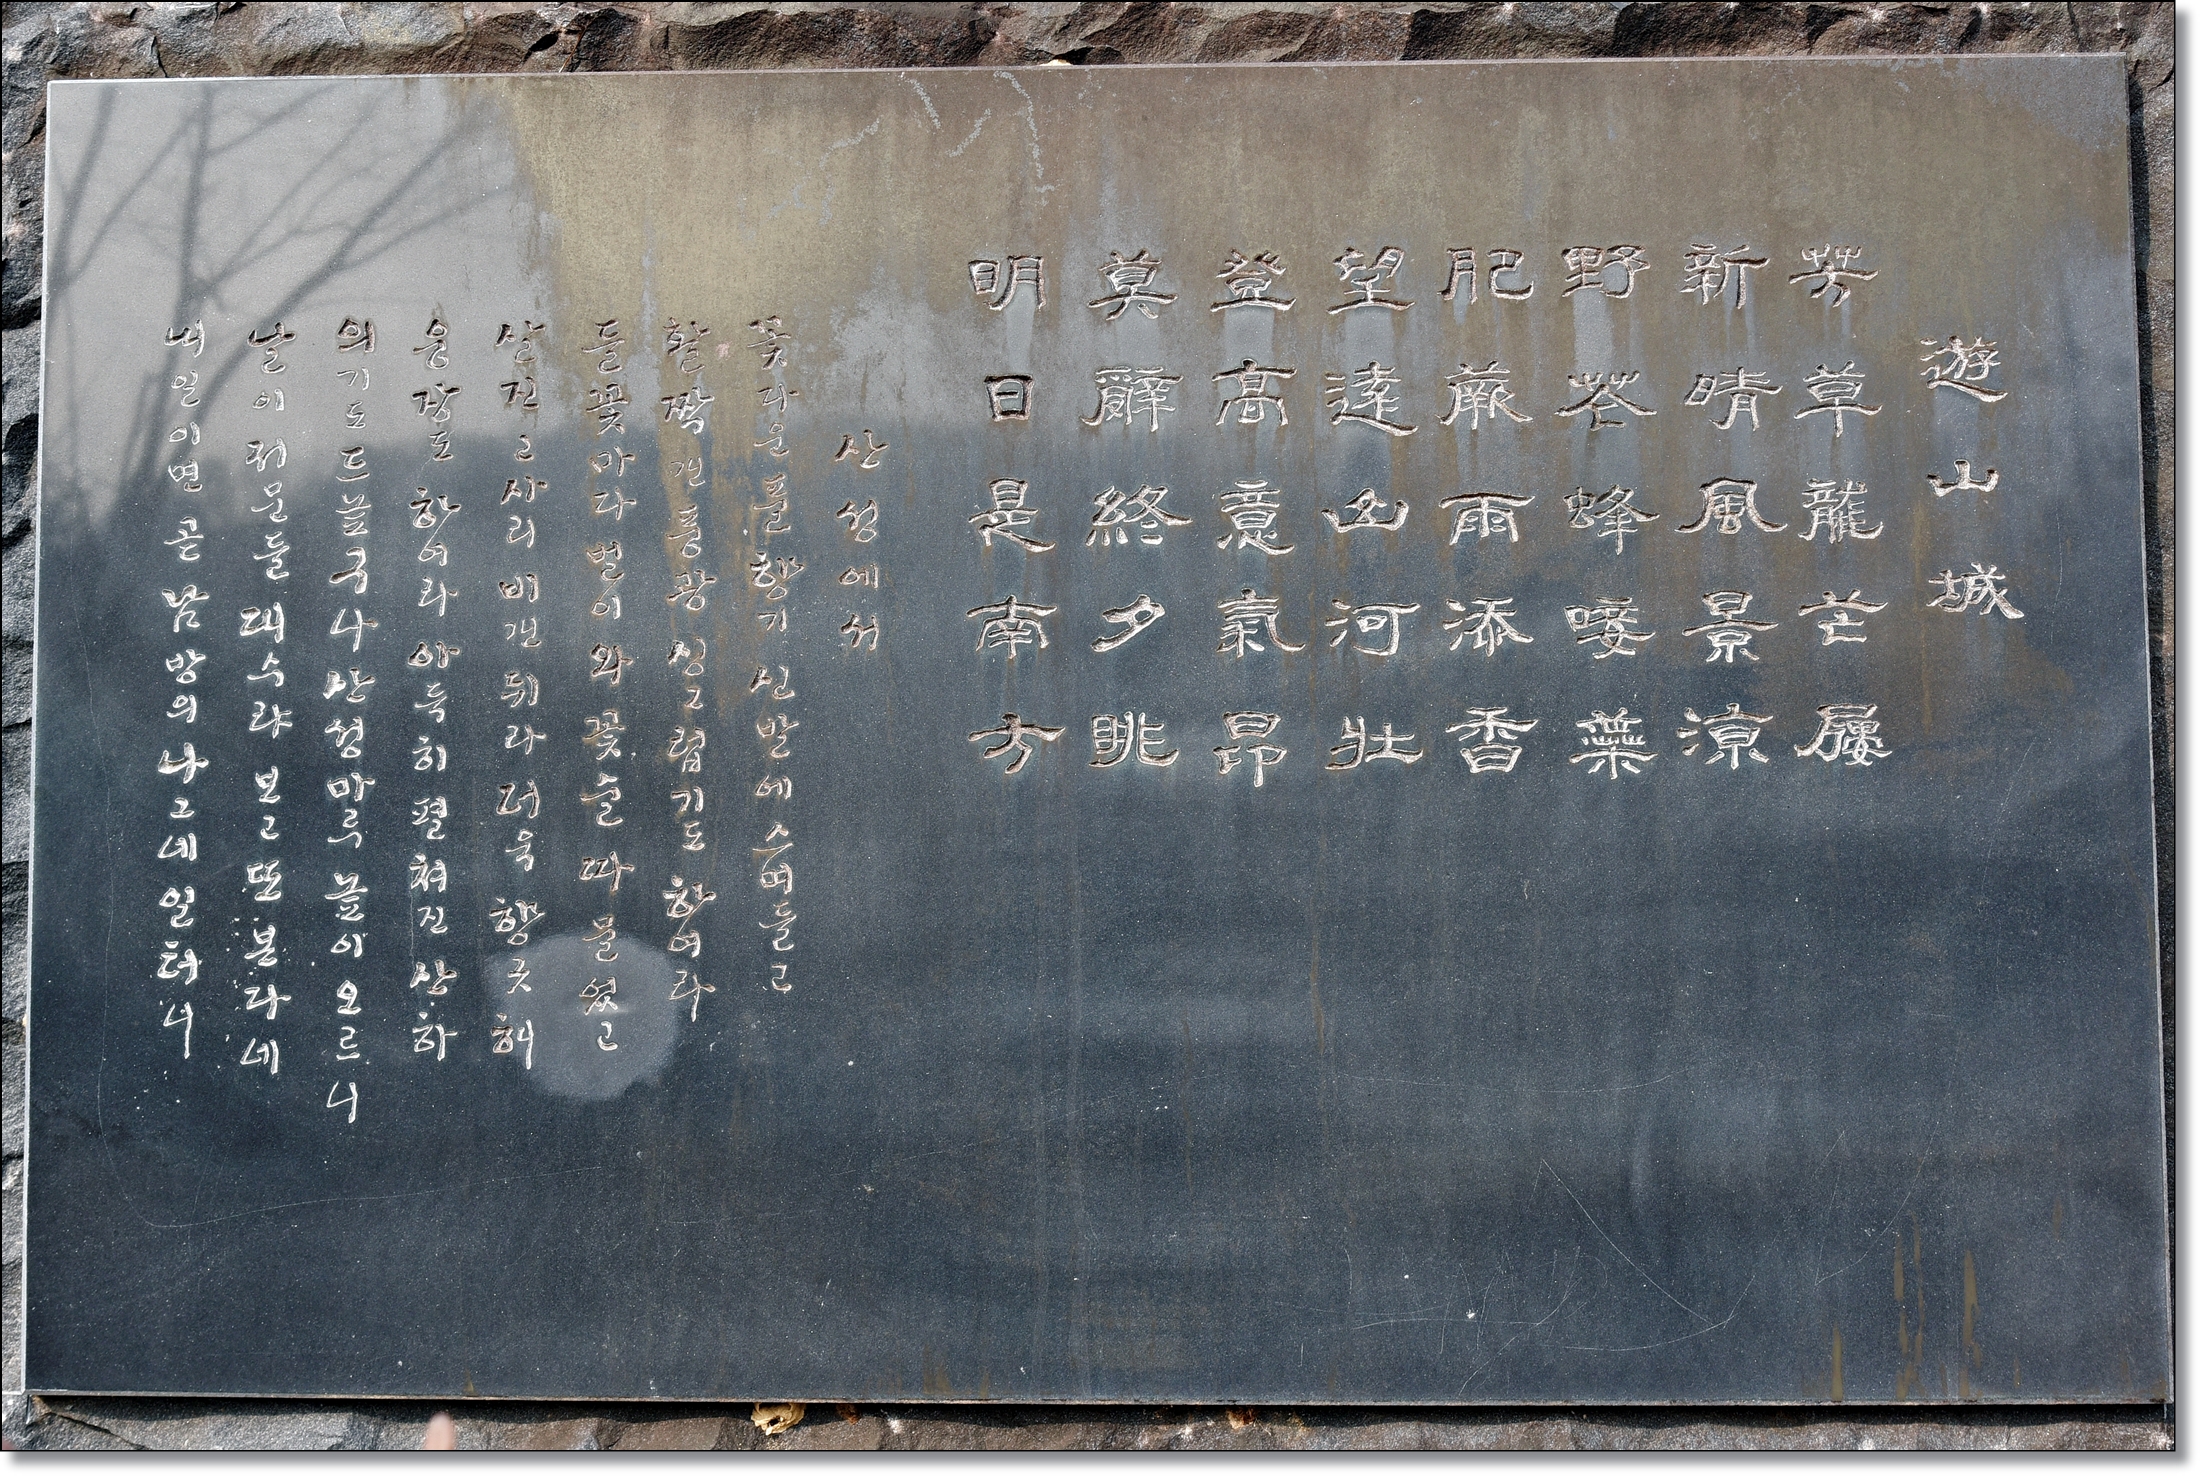 遊山城
芳草龍芒屨
新晴風景凉
野花蜂唼葉
肥蕨雨添香
望遠山河壯
登高意氣昂
莫辭終夕眺
明日是南方
산성에서
꽃다운 풀 향기 신발에 스며들고
활짝 갠 풍광 싱그럽기도 하여라
들꽃마다 벌이 와 꽃술 따 물었고
살진 고사리 비갠 뒤라 더욱 향긋해
웅장도 하여라 아득히 펼쳐진 산하
의기도 드높구나 산성마루 높이 오르니
날이 저문들 대수랴 보고 또 본다네
내일이면 곧 남방의 나그네 일터니